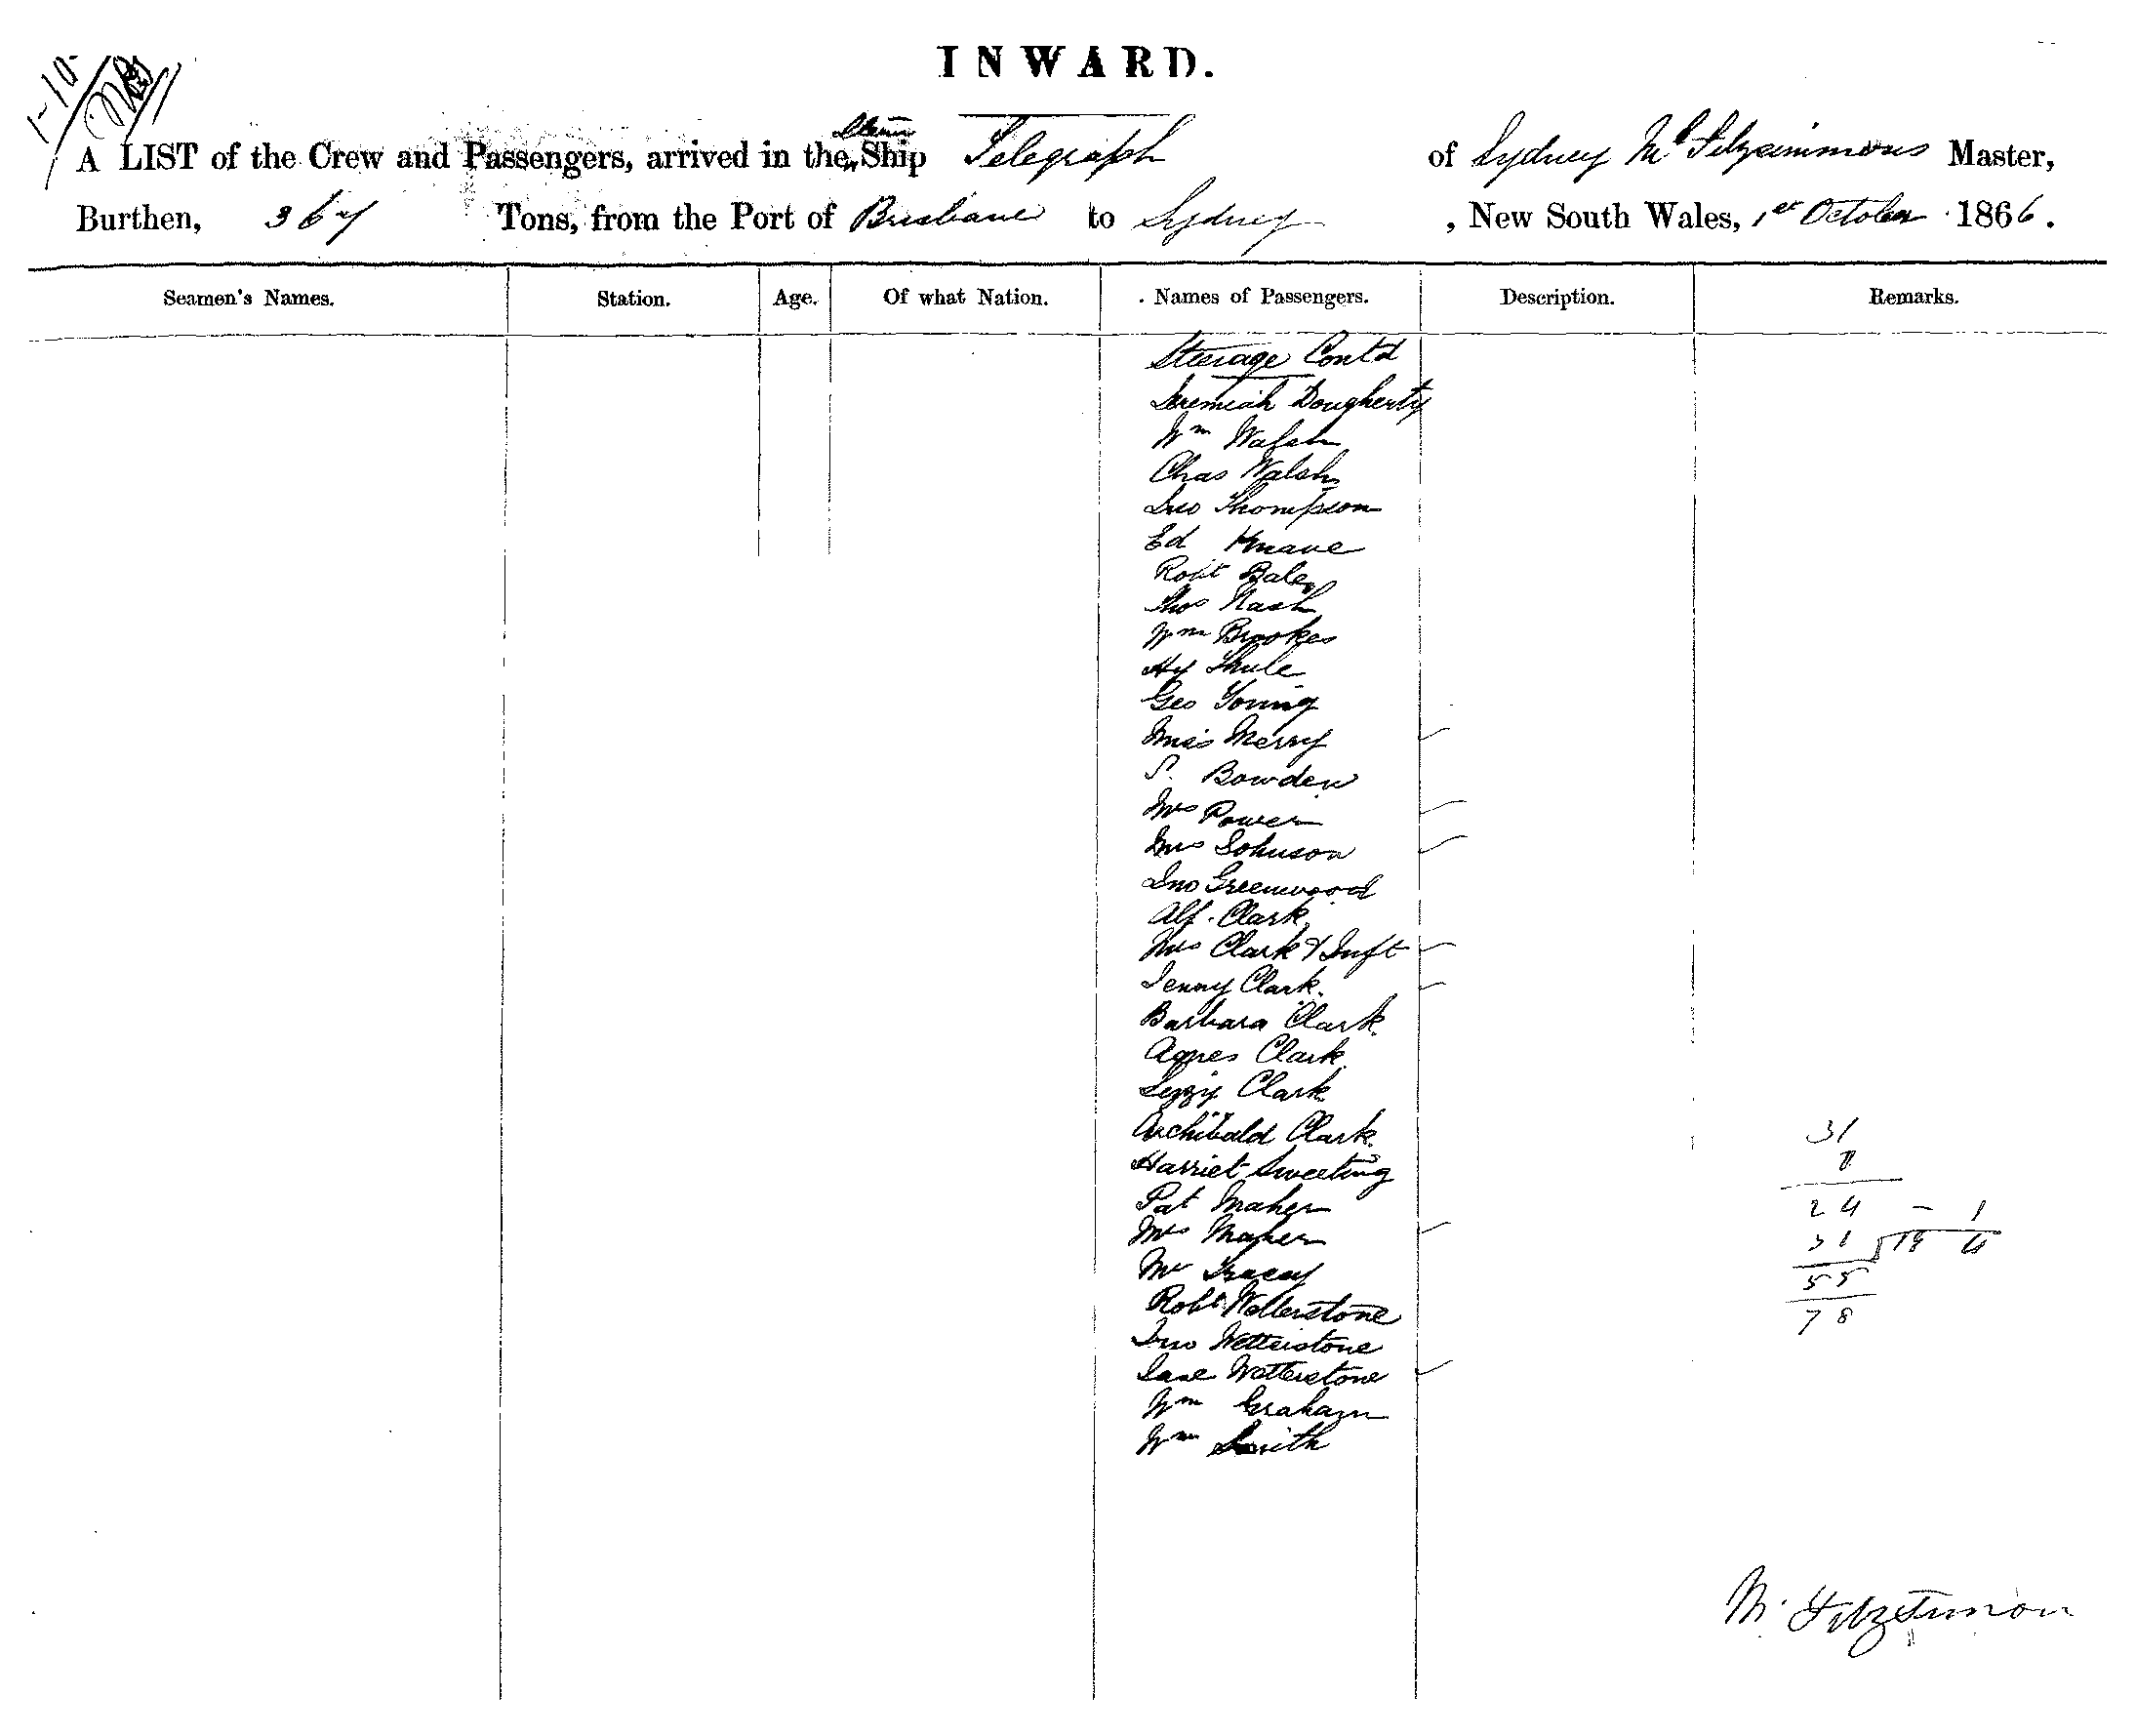 INWARD.
1-10-
A LIST of the Crew and Passengers, arrived in the Steam Ship Telegraph of Sydney Mc Fitzsimmons Master,
Burthen, 367 Tons, from the Port of Brisbane to Sydney, New South Wales, 1st October 1866.
Seamen's Names. Station. Age. Of what Nation. Names of Passengers. Description. Remarks.
Steerage Contd
Jeremiah Dougherty
Wm Walsh
Chas Walsh
Jno Thompson
Ed Knave
Robt Bale
Thos Nash
Wm Brookes
Hy Thule
Geo Young
Miss Merry
S. Bowden
Mrs Power
Mrs Johnson
Jno Greenwood
Alf. Clark
Mrs Clark & Inft
Jenny Clark.
Barbara Clark.
Agnes Clark.
Lizzy Clark
Archibald Clark.
31
Harriet Sweeting
Pat Maher
24 - 1
Mrs Maher
31
Mr Tracey
55
Robt Wetterstone
78
Jno Wetterstone
Jane Wetterstone
Wm Graham
Wm Smith
M. Fitzsimon